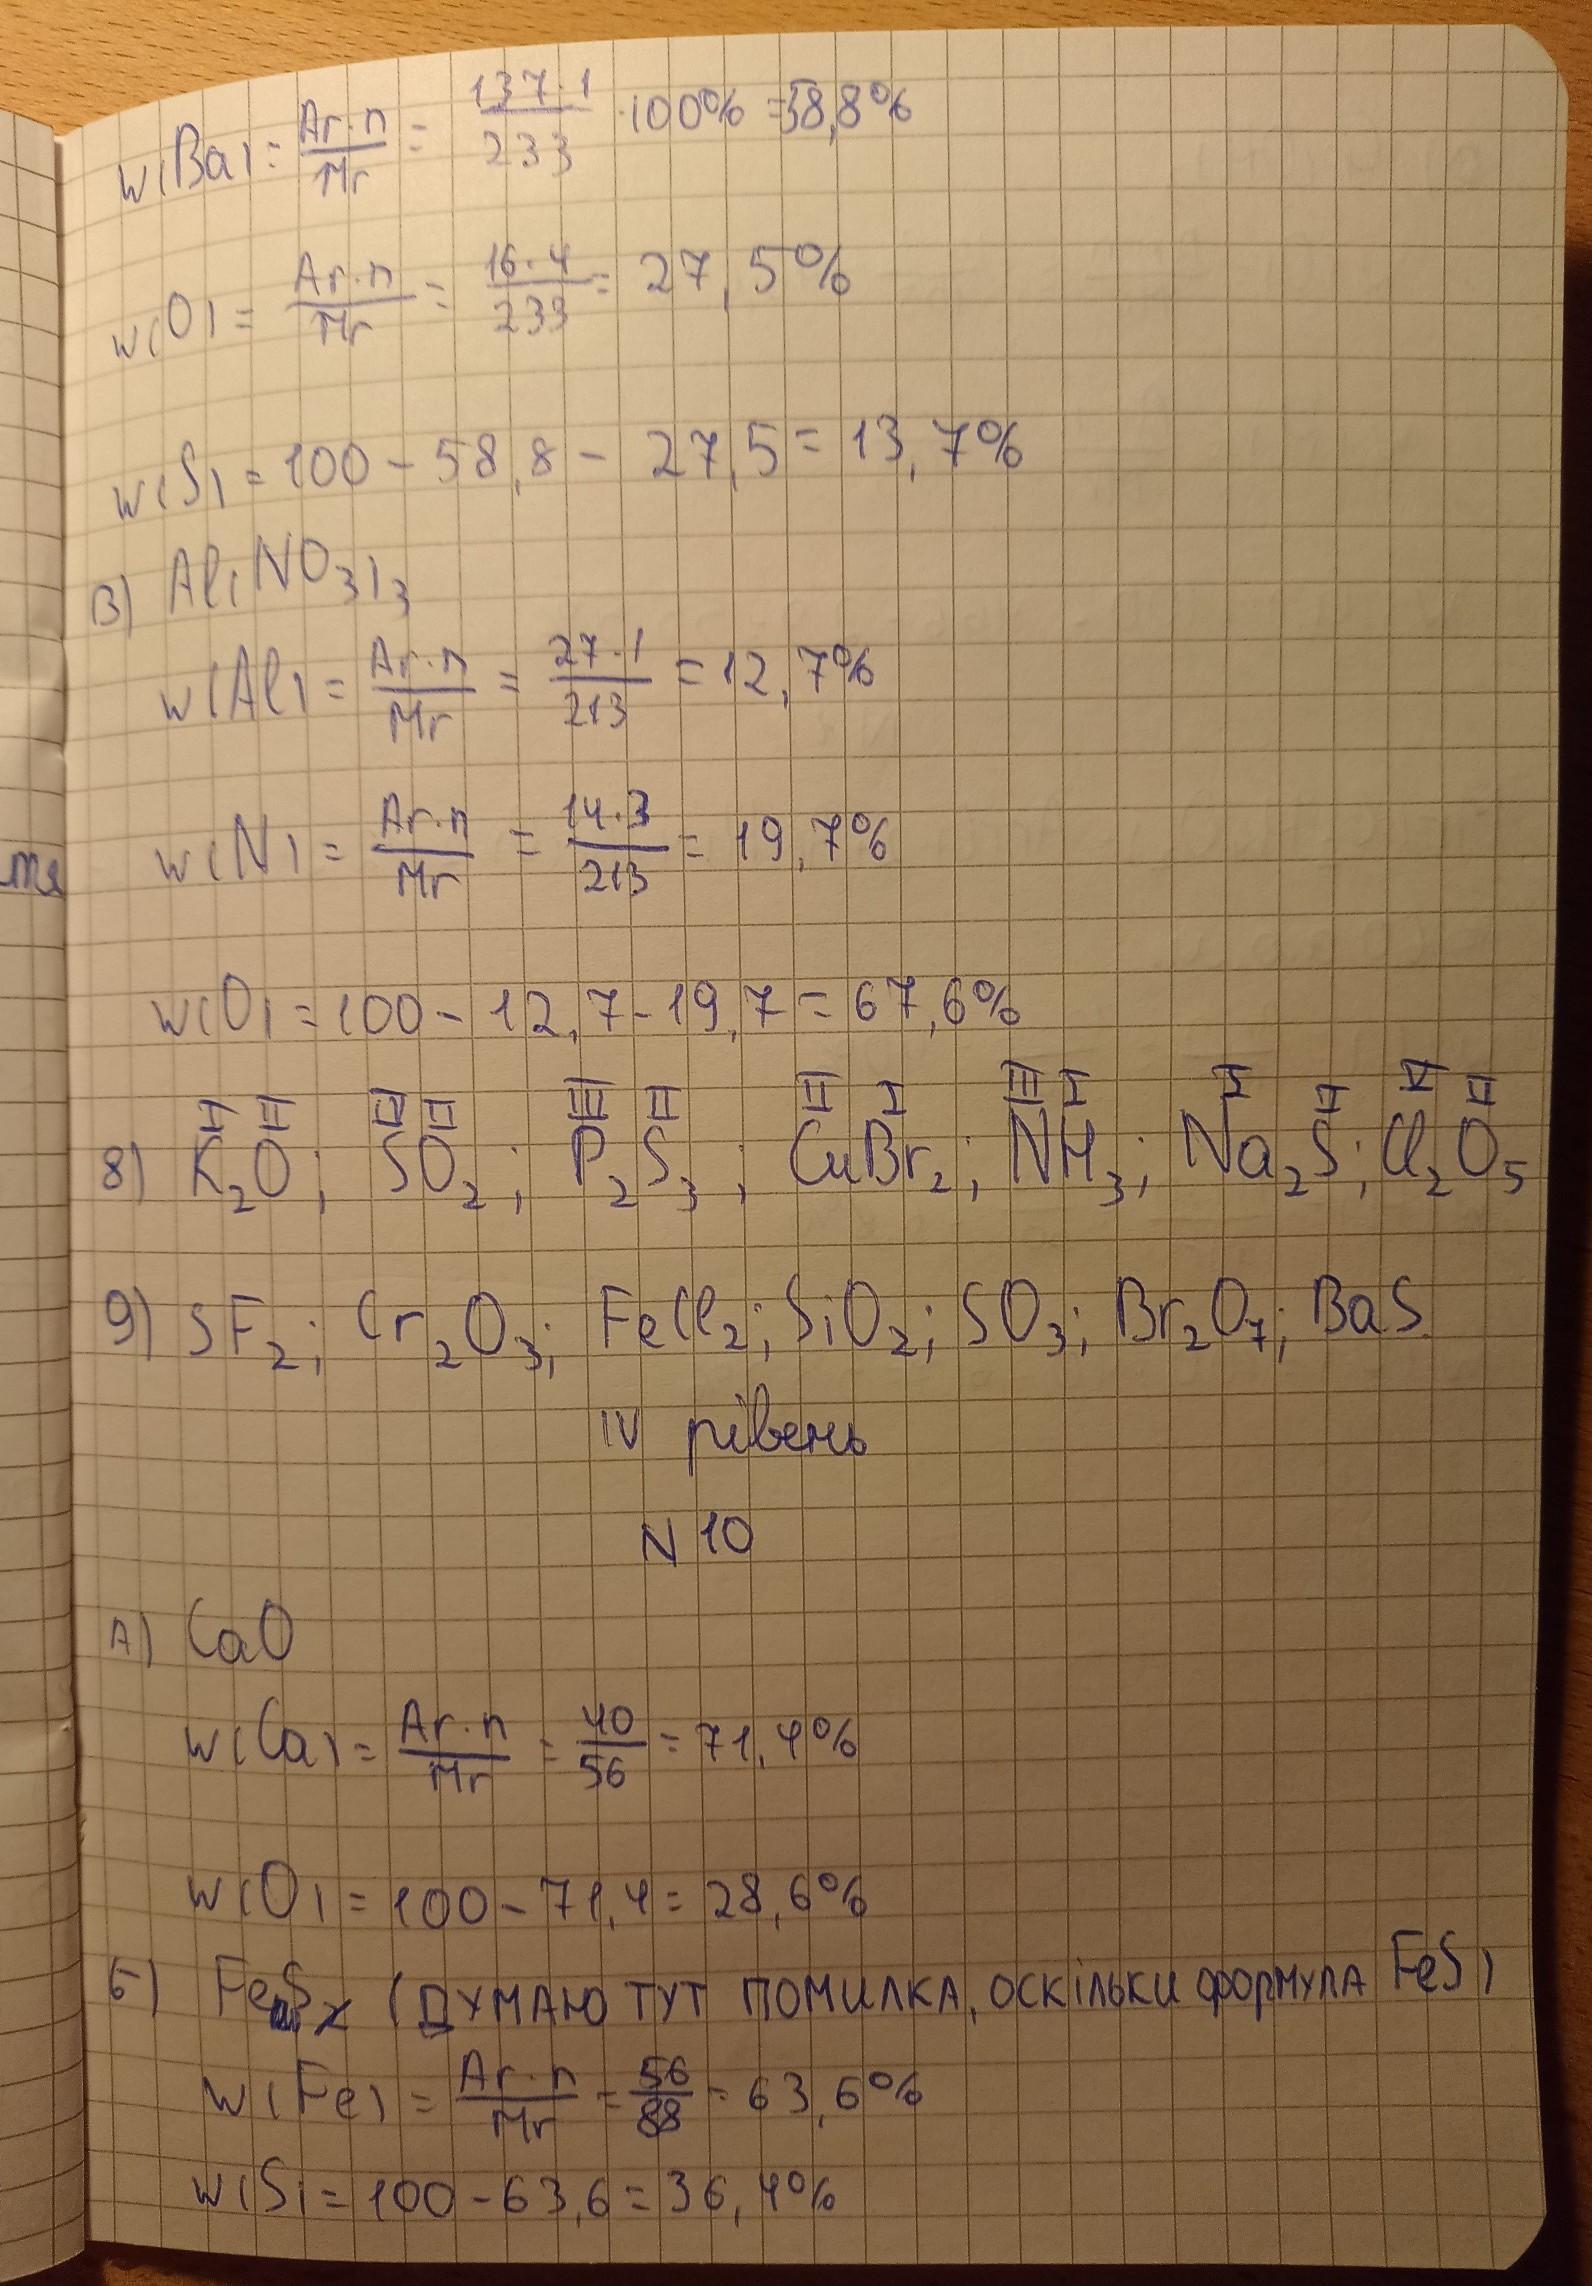 w(Ba) = Ar·n/Mr = 137·1/233 ·100% = 58,8%
w(O) = Ar·n/Mr = 16·4/233 = 27,5%
w(S) = 100 - 58,8 - 27,5 = 13,7%
В) Al(NO₃)₃
w(Al) = Ar·n/Mr = 27·1/213 = 12,7%
w(N) = Ar·n/Mr = 14·3/213 = 19,7%
тя
w(O) = 100 - 12,7 - 19,7 = 67,6%
I II IV II III II II I III I I II V II
8) K₂O; SO₂; P₂S₃; CuBr₂; NH₃; Na₂S; Cl₂O₅
9) SF₂; Cr₂O₃; FeCl₂; SiO₂; SO₃; Br₂O₇; BaS.
IV рівень
N 10
А) CaO
w(Ca) = Ar·n/Mr = 40/56 = 71,4%
w(O) = 100 - 71,4 = 28,6%
Б) FeS (ДУМАЮ ТУТ ПОМИЛКА, оскільки формула FeS)
w(Fe) = Ar·n/Mr = 56/88 = 63,6%
w(S) = 100 - 63,6 = 36,4%